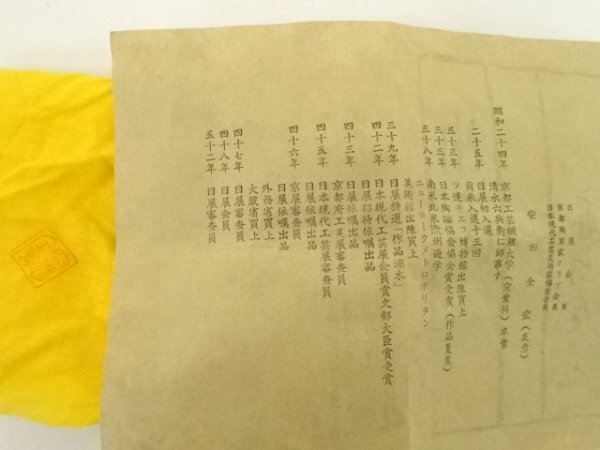 日展会員
京都陶芸家クラブ会員
日本現代工芸美術家協会会員
安田全宏（友彦）
昭和二十四年 京都工芸繊維大学（窯業科）卒業
清水六兵衛に師事す
二十五年 日展初入選
爾来入選十三回
三十三年 ソ連キエフ博物館出陳買上
三十三年 日本陶磁協会賞受賞（作品夏菜）
三十八年 南米北米欧州遊学
ニューヨークメトロポリタン
美術館出陳買上
三十九年 日展特選「作品涼水」
四十二年 日本現代工芸展会員賞文部大臣賞受賞
日展招待依嘱出品
四十三年 日展依嘱出品
京都府工美展審査員
四十五年 日本現代工芸展審査員
日展依嘱出品
四十六年 日展依嘱出品
京展審査員
外務省買上
大蔵省買上
四十七年 日展審査員
四十八年 日展会員
五十二年 日展審査員